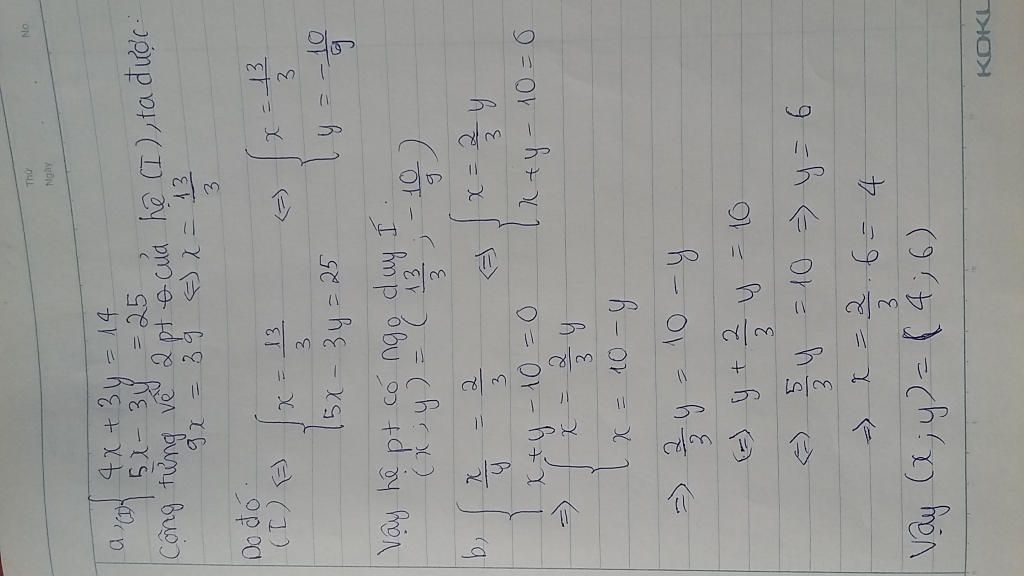 No.
Thứ
Ngày
a, (I) { 4x + 3y = 14
5x - 3y = 25
Cộng từng vế 2 pt của hệ (I), ta được:
9x = 39 <=> x = 13/3
Do đó:
(I) <=> { x = 13/3 <=> { x = 13/3
5x - 3y = 25 y = - 10/9
Vậy hệ pt có ngo duy I.
(x; y) = (13/3; - 10/9)
b, { x/y = 2/3 <=> { x = 2/3 y
x + y - 10 = 0 x + y - 10 = 0
=> { x = 2/3 y
x = 10 - y
=> 2/3 y = 10 - y
<=> y + 2/3 y = 10
<=> 5/3 y = 10 => y = 6
=> x = 2/3 . 6 = 4
Vậy (x; y) = (4; 6)